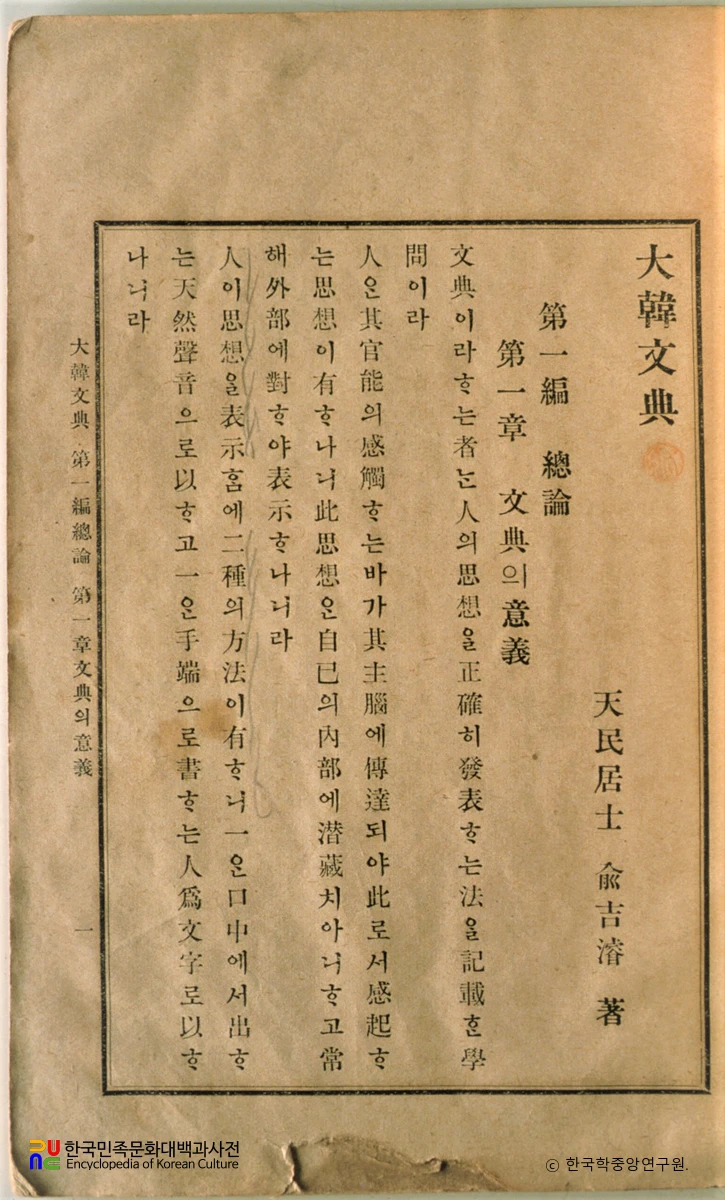 大韓文典
天民居士 兪吉濬 著
第一編 總論
第一章 文典의意義
文典이라ᄒᆞ는者ᄂᆞᆫ人의思想을正確히發表ᄒᆞ는法을記載ᄒᆞᆫ學
問이라
人은其官能의感觸ᄒᆞ는바가其主腦에傳達되야此로서感起ᄒᆞ
는思想이有ᄒᆞ나니此思想은自己의內部에潛藏치아니ᄒᆞ고常
해外部에對ᄒᆞ야表示ᄒᆞ나니라
人이思想을表示ᄒᆞᆷ에二種의方法이有ᄒᆞ니一은口中에서出ᄒᆞ
는天然聲音으로以ᄒᆞ고一은手端으로書ᄒᆞ는人爲文字로以ᄒᆞ
나니라
大韓文典 第一編總論 第一章文典의意義
一
한국민족문화대백과사전
Encyclopedia of Korean Culture
ⓒ 한국학중앙연구원.